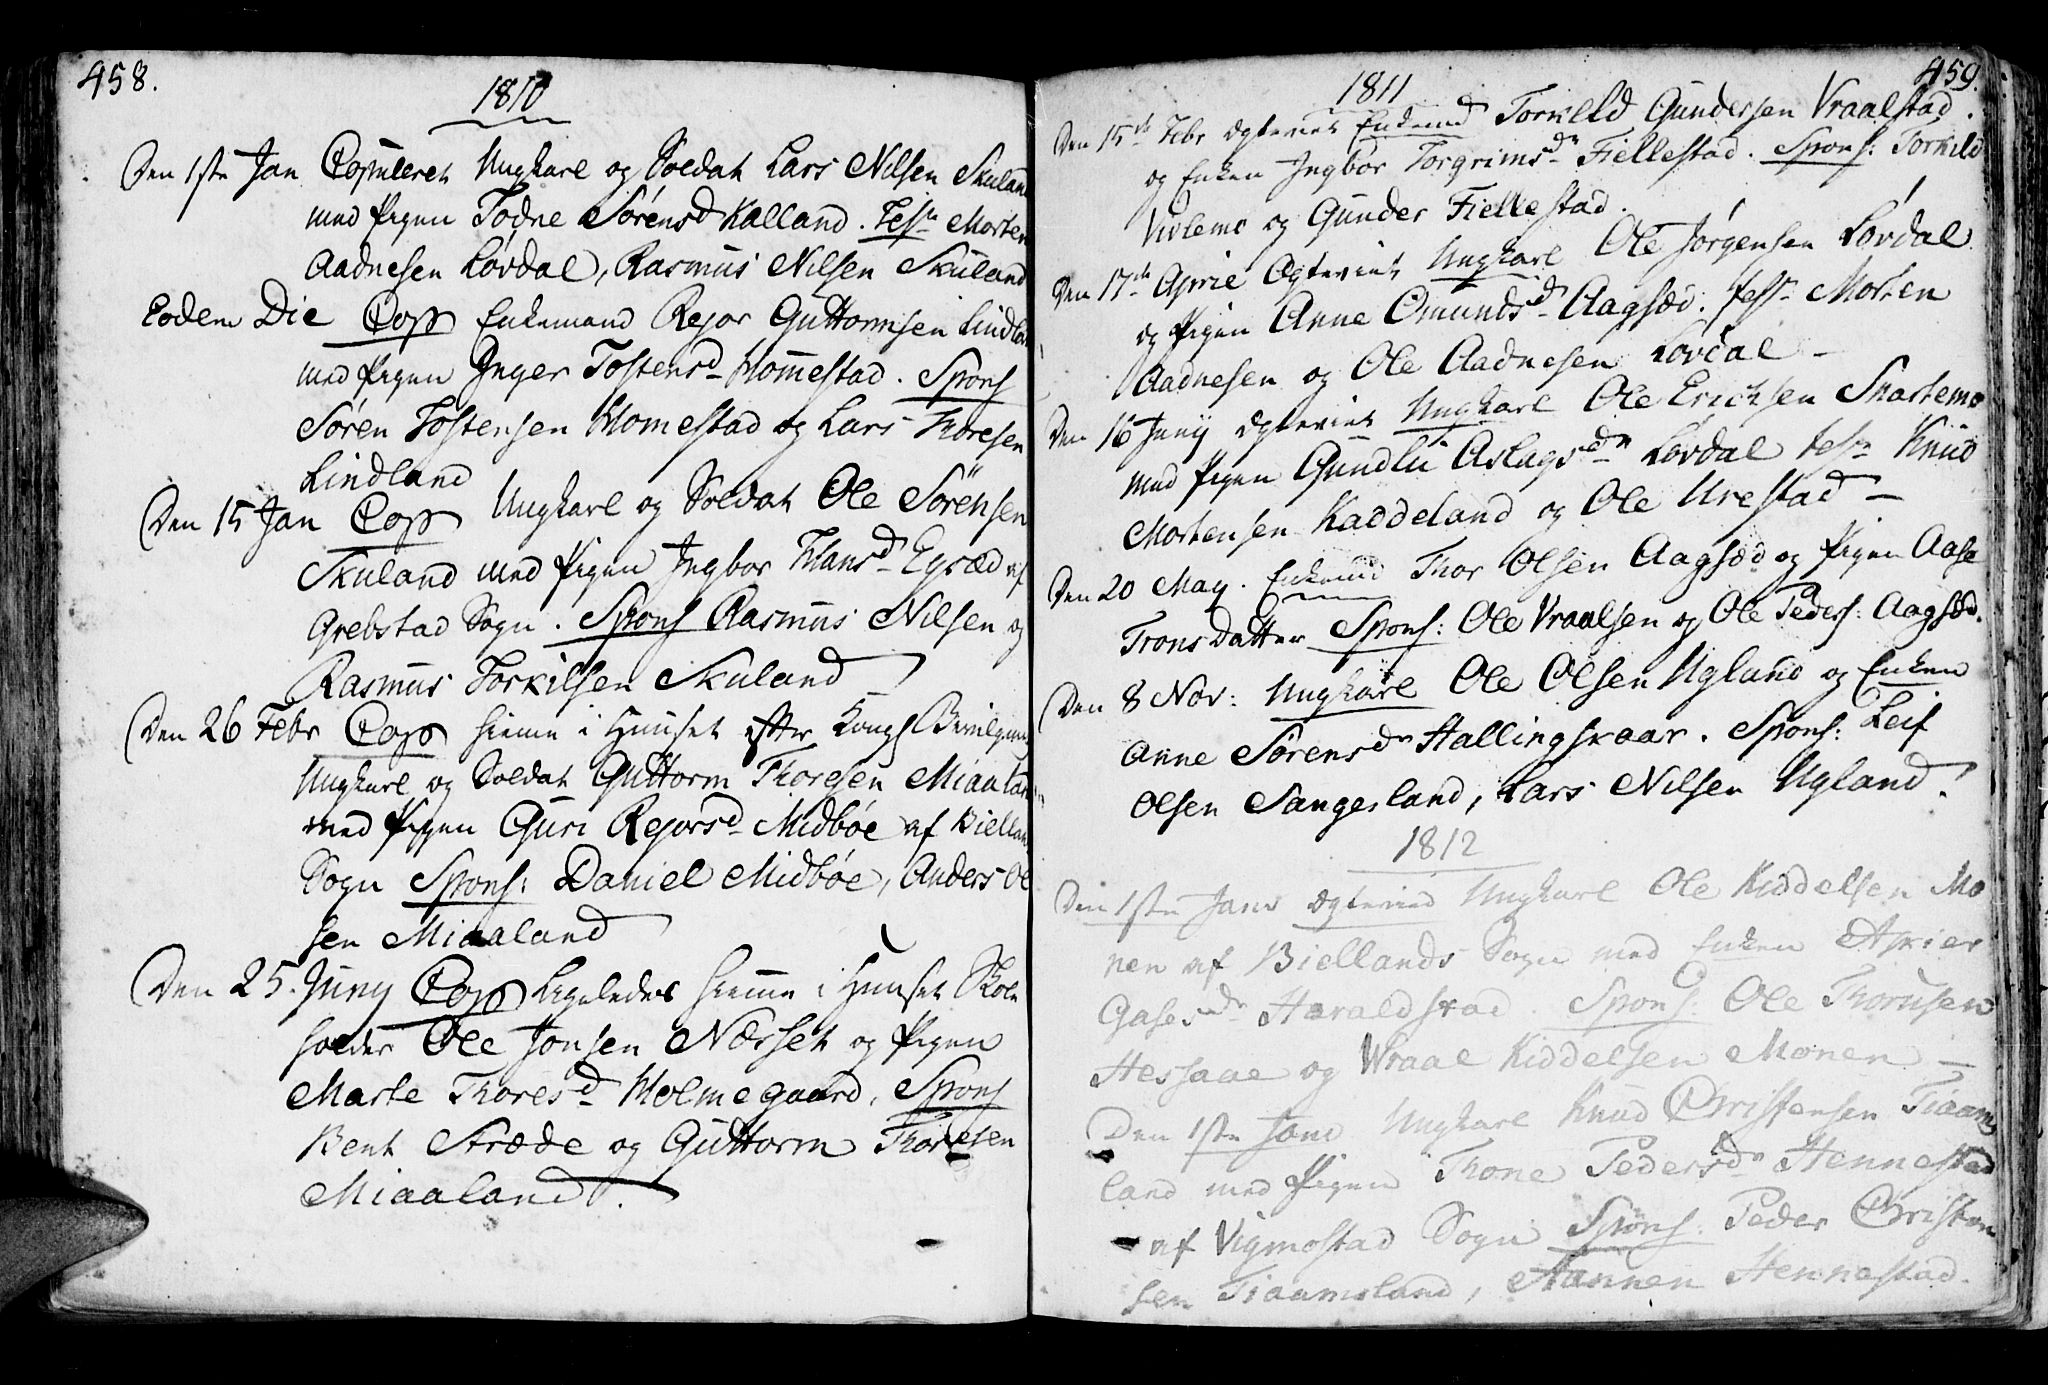 458.
1810
Den 1ste Jan Copuleret Ungkarl og Soldat Lars Nilsen Skuland
med Pigen Todne Sörensd Kalland. Test Morten
Aadnesen Lövdal, Rasmus Nilsen Skuland
Eodem Die Cop Enkemand Rejor Guttormsen Lindland
med Pigen Inger Tostensd Homestad. Spons
Sören Tostensen Homestad og Lars Thoresen
Lindland
Den 15 Jan Cop Ungkarl og Soldat Ole Sörensen
Skuland med Pigen Ingbor Hansd Egsæd af
Grebstad Sogn. Spons Rasmus Nilsen og
Rasmus Torkilsen Skuland
Den 26 Febr Cop hieme i Huuset efter Kongl
Ungkarl og Soldat Guttorm Thoresen Miaaland
med Pigen Guri Rejorsd Midböe af Bielland
Sogn Spons: Daniel Midböe, Anders Ol
sen Miaaland
Den 25. Juny Cop Ligeledes hieme i Huuset Skole
holder Ole Jonsen Næsset og Pigen
Marte Thoresd Holmegaard. Spons
Bent Stræde og Guttorm Thoresen
Miaaland.
459.
1811
Den 15de Febr ægteviet Enkemd Torkild Gundersen Vraalstad
og Enken Ingbor Torgrimsdr Fiellestad. Spons: Torkild
Violemo og Gunder Fiellestad.
Den 17de April Ægteviet Ungkarl Ole Jörgensen Lövdal
og Pigen Anne Omundsd Aagsæd. Test Morten
Aadnesen og Ole Aadnesen Lovdal
Den 16 Juny ægteviet Ungkarl Ole Erichsen Snartemo
med Pigen Gundlu Aslagsdr Lovdal test Knud
Mortensen Kaddeland og Ole Urestad
Den 20 May. Enkemd Thor Olsen Aagsæd og Pigen Aase
TronsDatter Spons: Ole Vraalsen og Ole Peders: Aagsæd.
Den 8 Nov: Ungkarl Ole Olsen Ugland og Enken
Anne Sörensdr Hallingskaar. Spons: Leif
Olsen Sangesland, Lars Nilsen Ugland.
1812
Den 1ste Janv ægtevied Ungkarl Ole Kiddelsen Mo
nen af Biellands Sogn med Enken Ask
Gasesdr Haraldstad. Spons: Ole Thorusen
Hessaae og Wraal Kiddelsen Monen
Den 1ste Janv Ungkarl Knud Christensen Tiaams
land med Pigen Thone Pedersdr Hennestad
af Vigmostad Sogn Spons: Peder Christen
sen Tiaamsland, Aannen Hennestad.